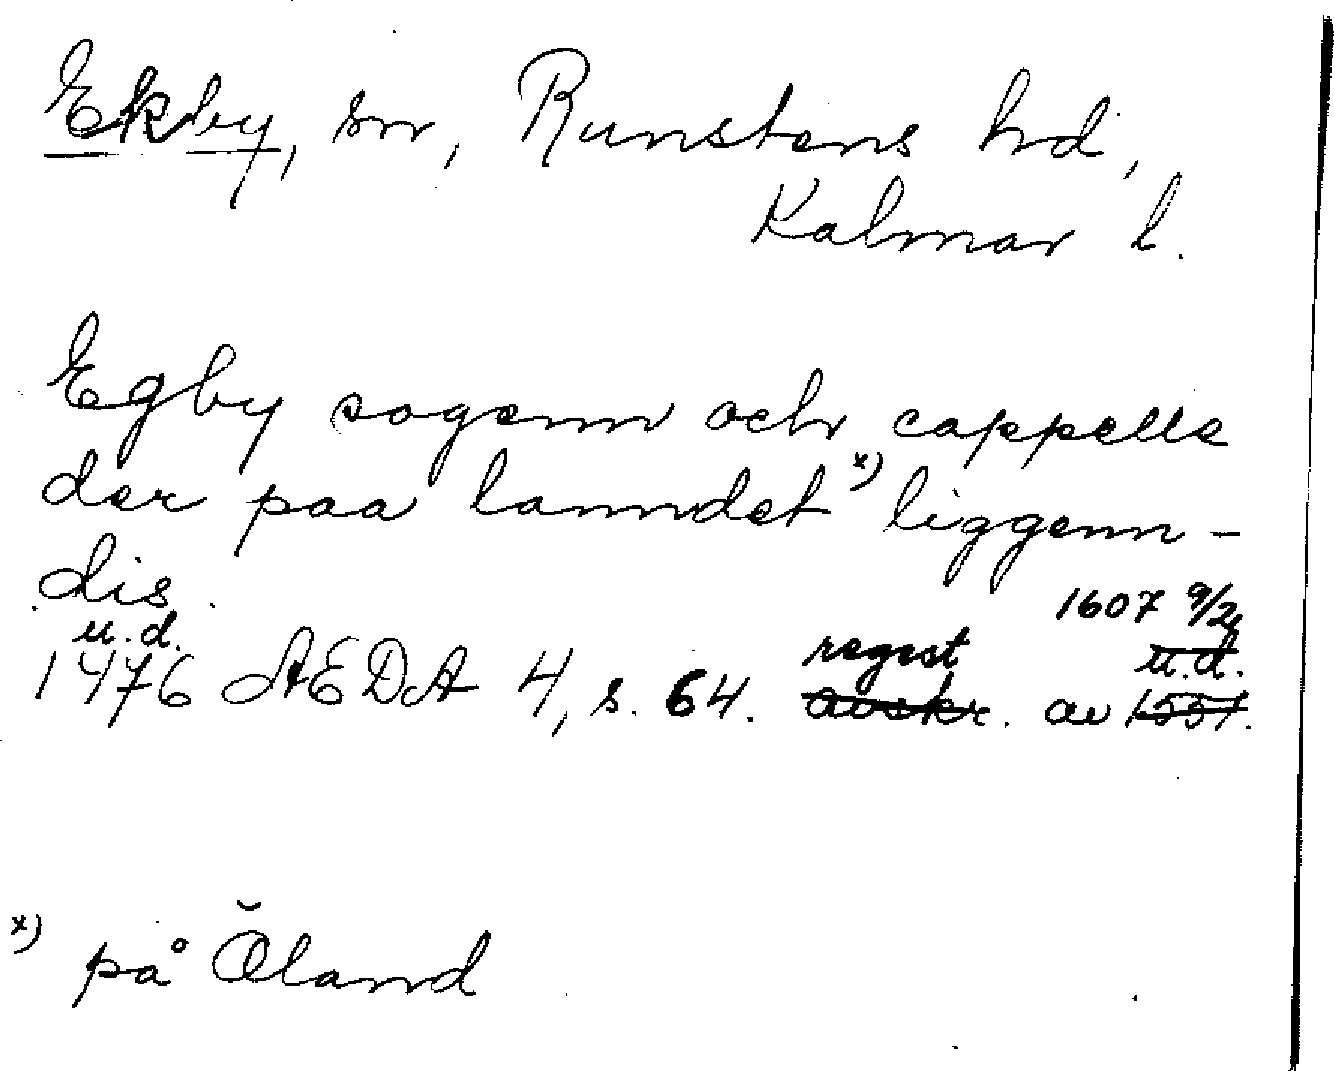 Ekby, sn, Runstens hd,
Kalmar l.
Egby sogenn och cappelle
der paa lanndet x) liggenn-
dis.
1607 9/2
u.d. regest u.d.
1476 AEDA 4, s. 64. avskr. av 1551.
x) på Öland